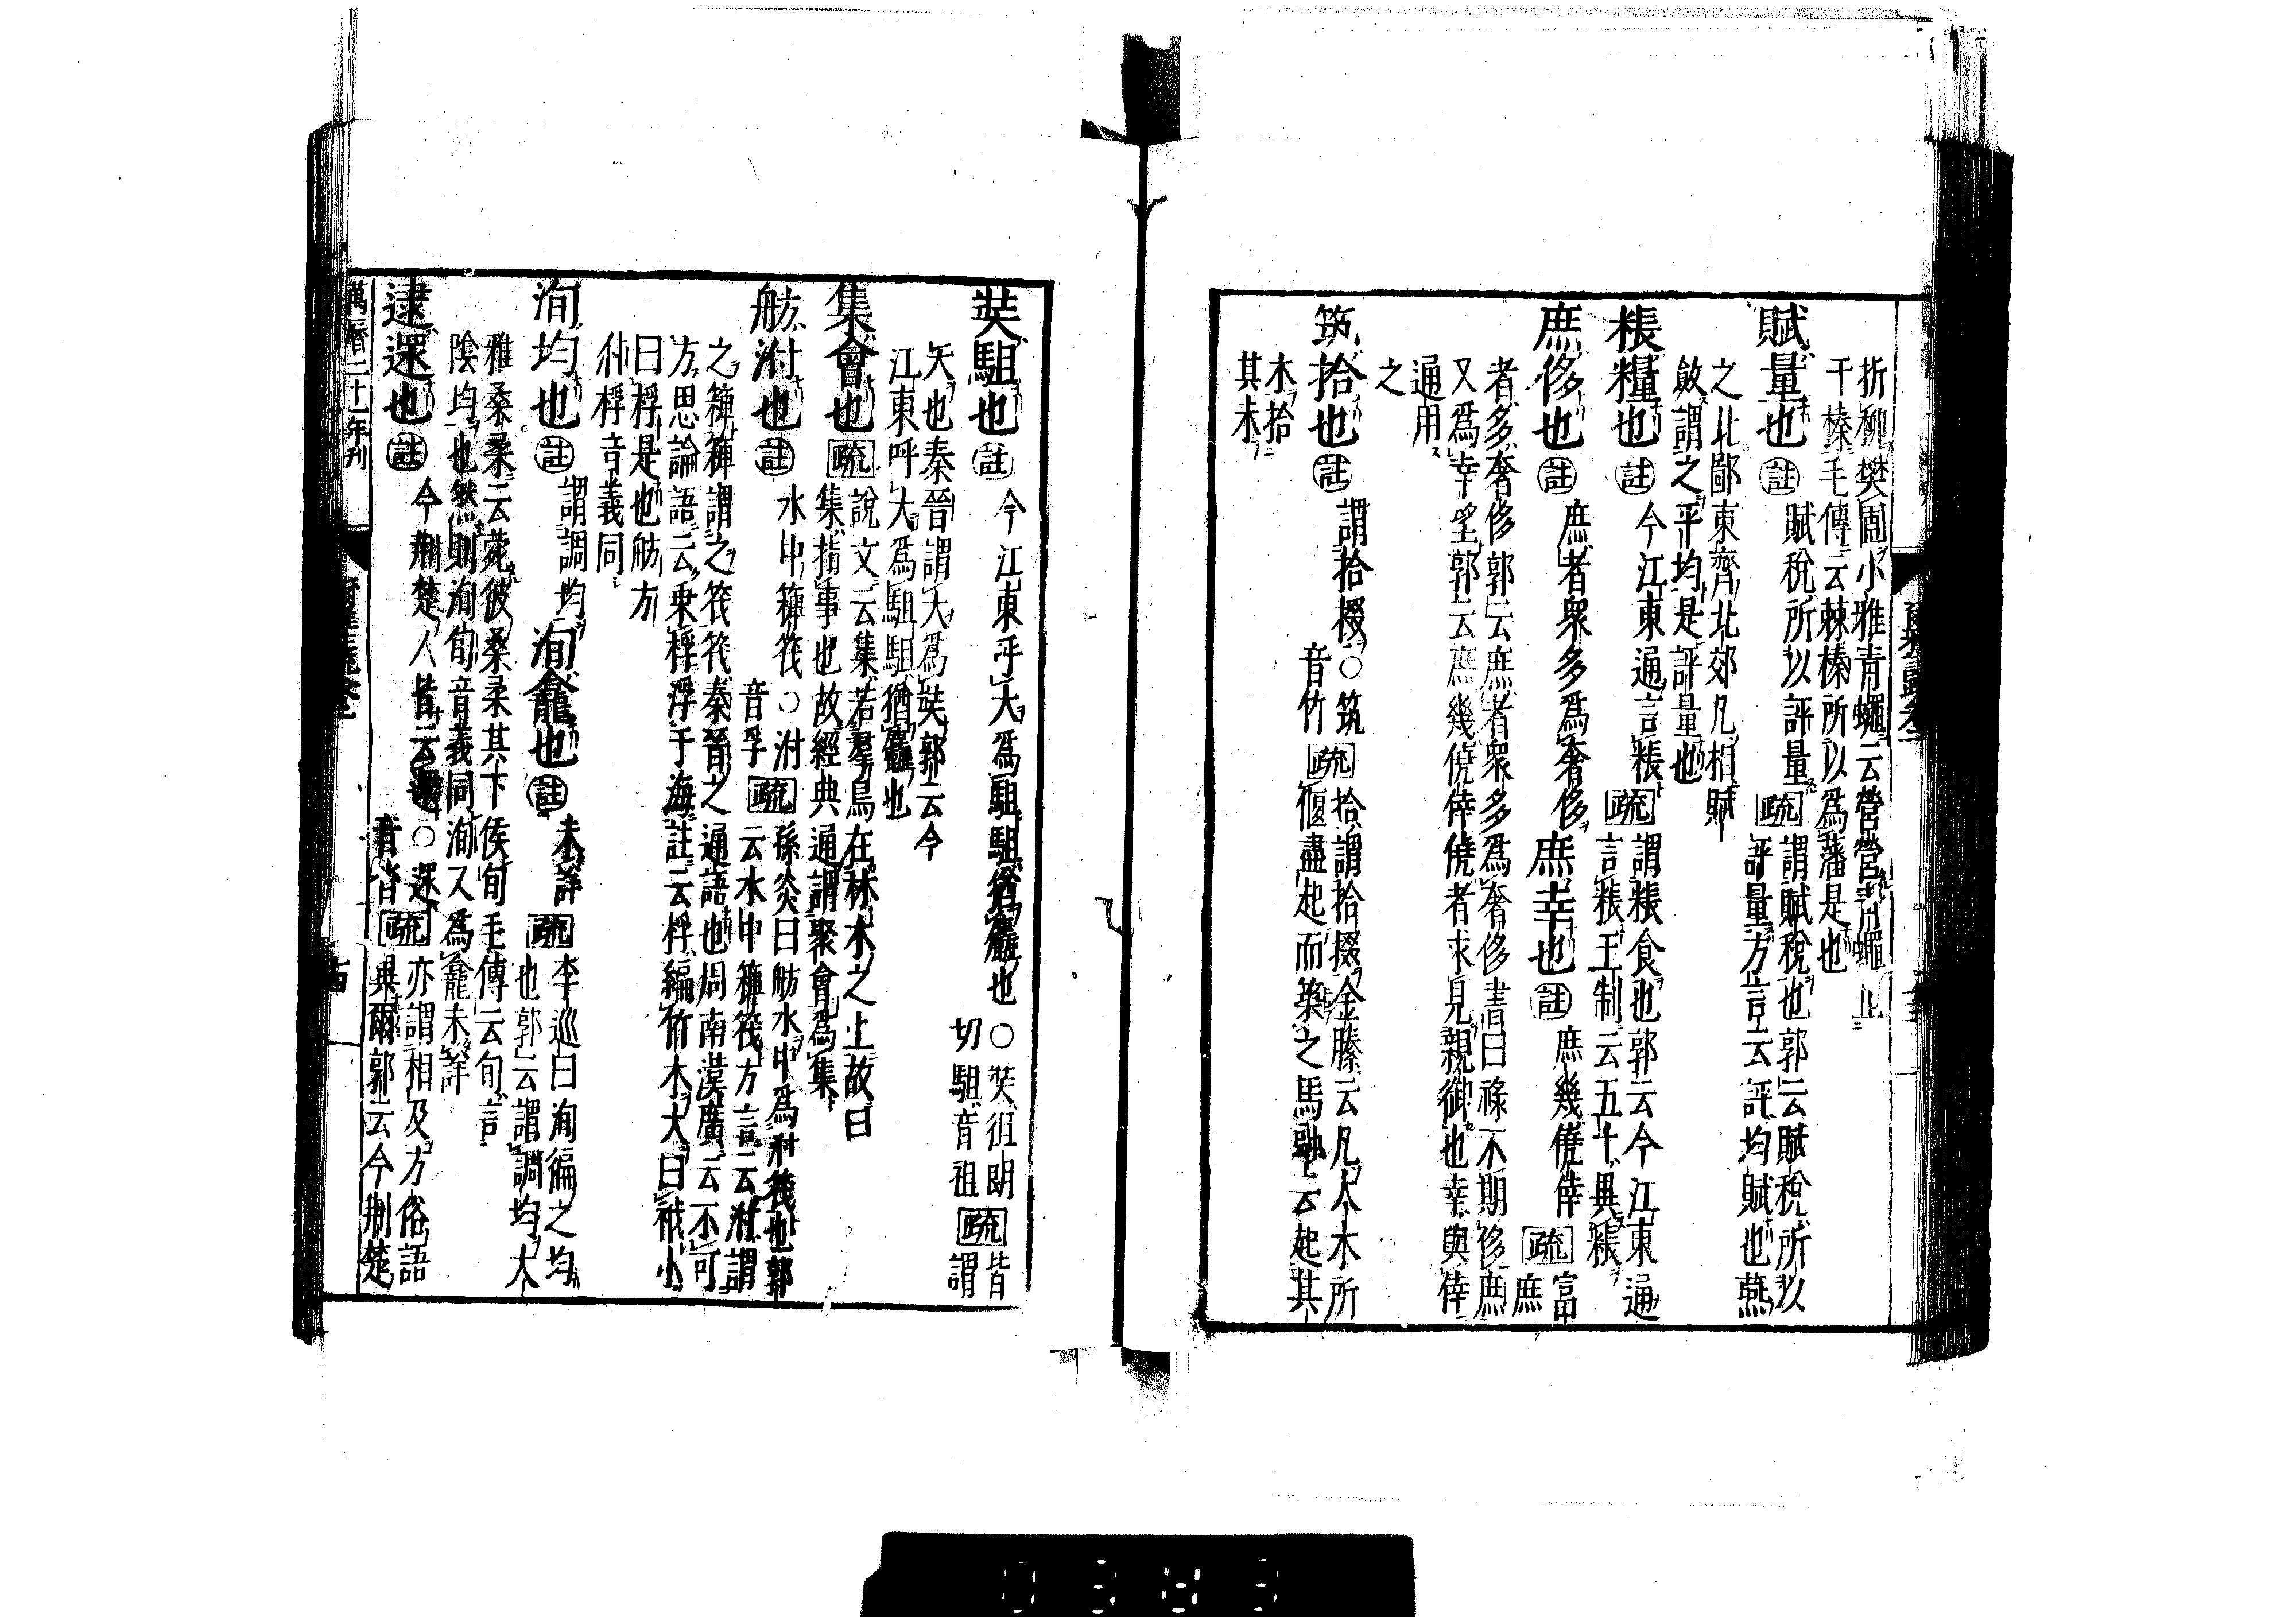 折柳樊圃小雅青蠅云營營青蠅止
于榛毛傳云棘榛所以爲藩是也
賦量也註賦稅所以評量疏謂賦稅也郭云賦稅所以
評量方言云評均賦也燕
之北鄙東齊北郊凡相賦
斂謂之平均是評量也
粻糧也註今江東通言粻疏謂粻食也郭云今江東通
言粻王制云五十異粻
庶侈也註庶者衆多爲奢侈庶幸也註庶幾僥倖疏富
庶
者多奢侈郭云庶者衆多爲奢侈書曰祿不期侈庶
又爲幸望郭云庶幾僥倖僥者求見親御也幸與倖
通用
筑拾也註謂拾掇○筑
音竹疏拾謂拾掇金縢云凡大木所
偃盡起而築之馬融云起其
木拾
其禾
之
奘駔也註今江東呼大爲駔駔猶麤也○奘徂朗
切駔音祖疏皆
謂
大也秦晉謂大爲奘郭云今
江東呼大爲駔駔猶麤也
集會也疏說文云集若羣鳥在林木之上故曰
集指事也故經典通謂聚會爲集
舫泭也註水中䉬筏○泭
音孚疏孫炎曰舫水中爲泭筏也郭
云水中䉬筏方言云泭謂
之䉬䉬謂之筏筏秦晉之通語也周南漢廣云不可
方思論語云乗桴浮于海註云桴編竹木大曰栰小
曰桴是也舫方
泭桴音義同
洵均也註謂調均洵龕也註未詳疏李巡曰洵徧之均
也郭云謂調均大
雅桑柔云菀彼桑柔其下侯旬毛傳云旬言
陰均也然則洵旬音義同洵又爲龕未詳
逮遝也註今荆楚人皆云遝○遝
音沓疏亦謂相及方俗語
異爾郭云今荆楚
萬曆二十一年刊